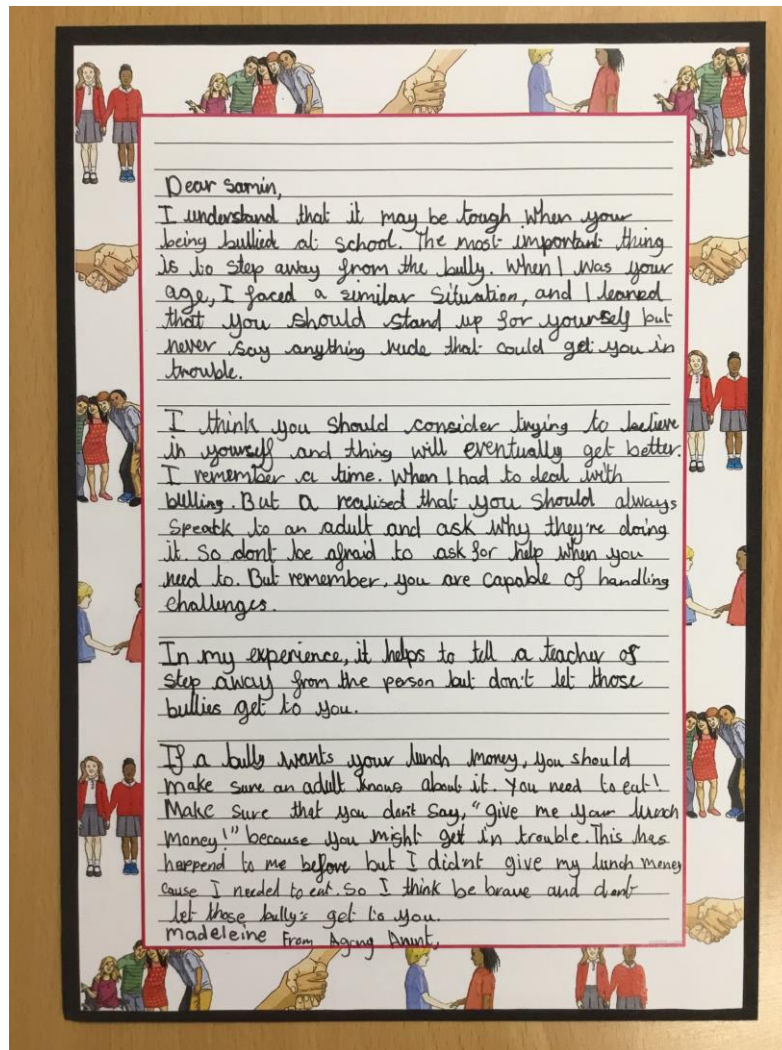 Dear Samin,
I understand that it may be tough when your
being bullied at school. The most important thing
is to step away from the bully. When I was your
age, I faced a similar situation, and I learned
that you should stand up for yourself but
never say anything rude that could get you in
trouble.
I think you should consider trying to believe
in yourself and thing will eventually get better.
I remember a time. When I had to deal with
bulling. But a realised that you should always
speatk to an adult and ask why they're doing
it. So dont be afraid to ask for help when you
need to. But remember, you are capable of handling
challenges.
In my experience, it helps to tell a teacher of
step away from the person but don't let those
bullies get to you.
If a bully wants your lunch money, you should
make sure an adult knows about it. You need to eat!
Make sure that you don't say, "give me your lunch
money!" because you might get in trouble. This has
happend to me before but I did'nt give my lunch money
cause I needed to eat. So I think be brave and dont
let those bully's get to you.
madeleine From Agony Aunt,